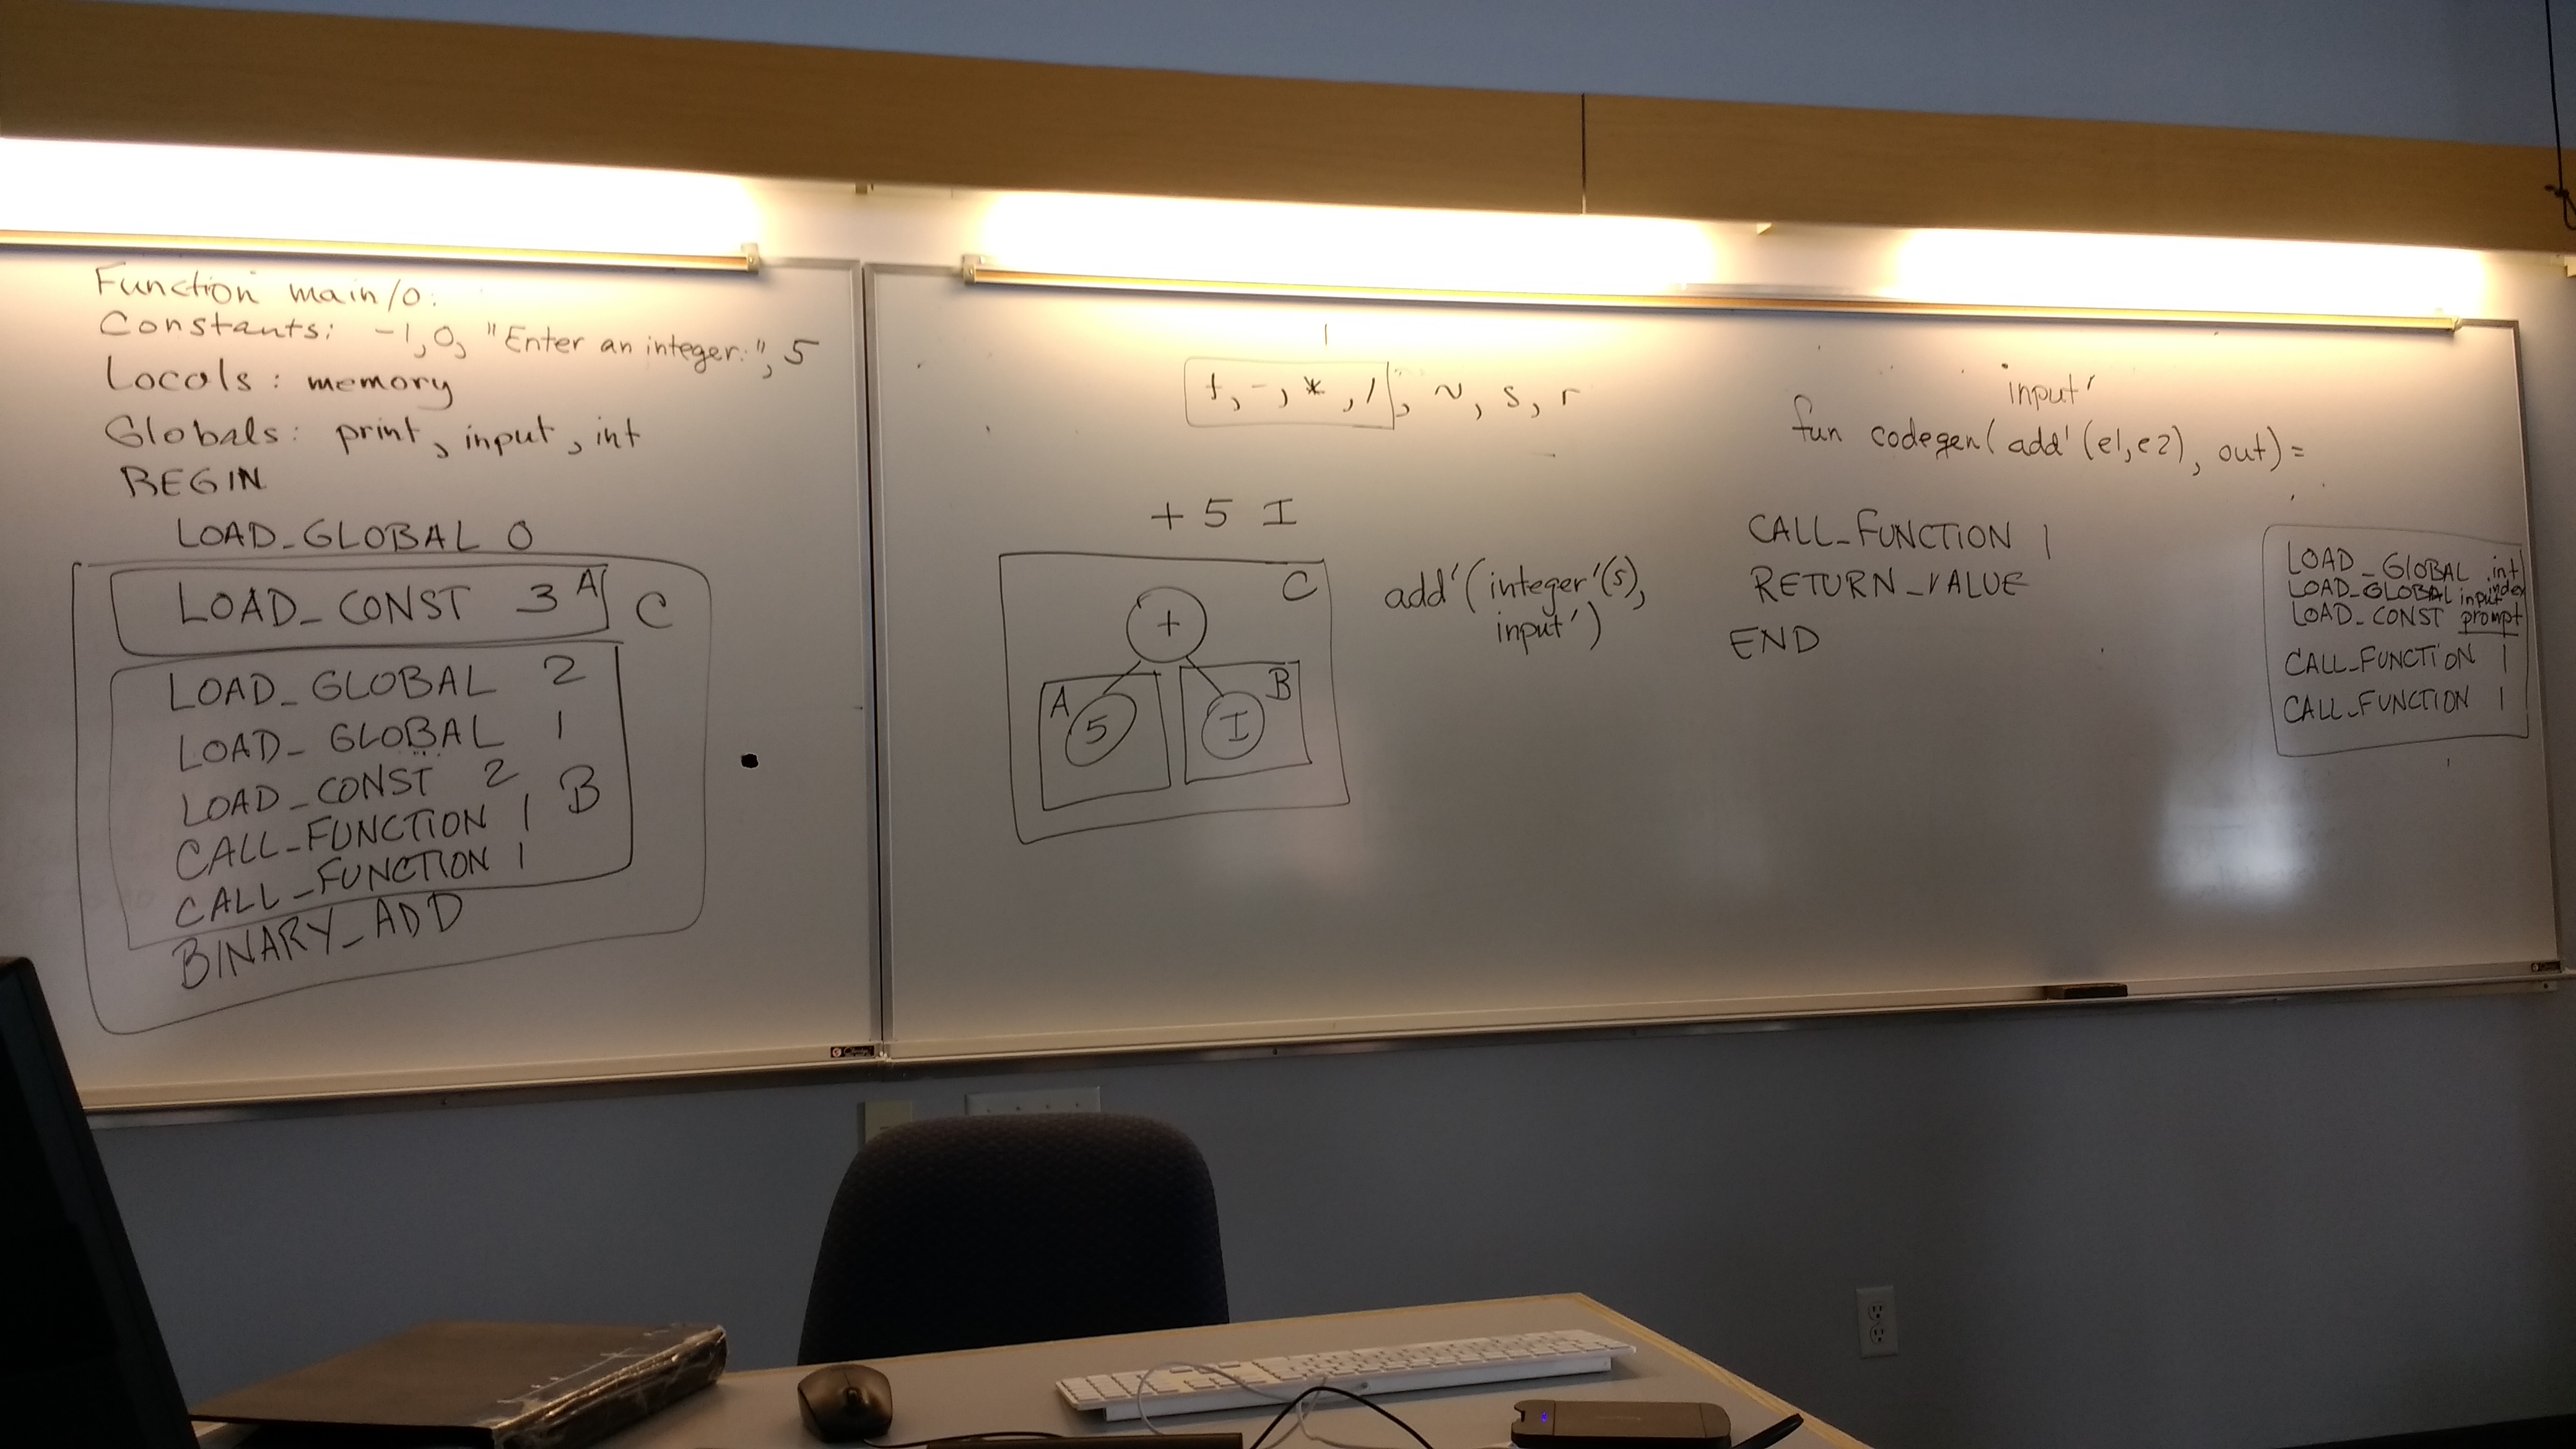 Function main/0:
Constants: -1, 0, "Enter an integer:", 5
Locals: memory
Globals: print, input, int
BEGIN
LOAD_GLOBAL 0
LOAD_CONST 3 A
C
LOAD_GLOBAL 2
LOAD_GLOBAL 1
LOAD_CONST 2
CALL_FUNCTION 1 B
CALL_FUNCTION 1
BINARY_ADD
+, -, *, /, ~, s, r
+ 5 I
C
+
A 5
B I
add'(integer'(5),
input')
input'
fun codegen(add'(e1,e2), out) =
CALL_FUNCTION 1
RETURN_VALUE
END
LOAD_GLOBAL int
LOAD_GLOBAL input index
LOAD_CONST prompt
CALL_FUNCTION 1
CALL_FUNCTION 1